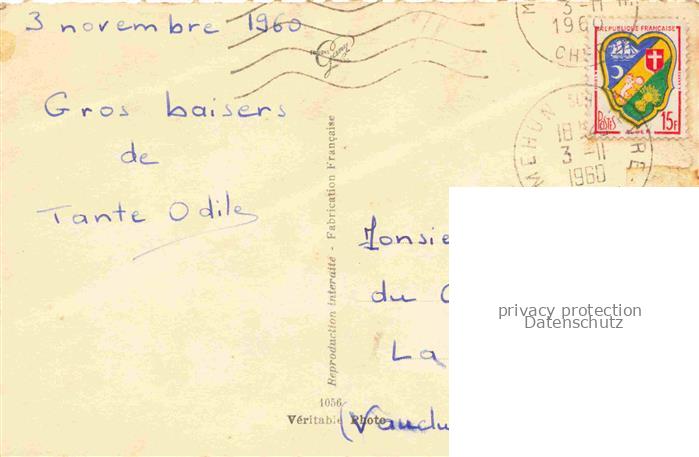 3 novembre 1960
Gros baisers
de
Tante Odile
Reproduction interdite - Fabrication Française
1056
Véritable Photo
3 - 11
1960
CHER
RÉPUBLIQUE FRANÇAISE
POSTES
ALGER
15F
MEHUN
18
3 - 11
1960
du
La
privacy protection
Datenschutz